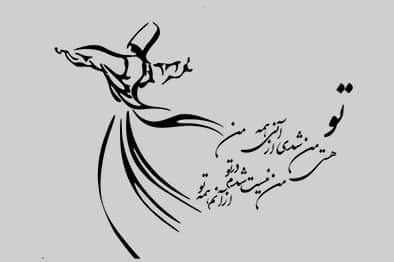 تو
هستی من شدی از آنی همه من
من نیست شدم در تو از آنم همه تو